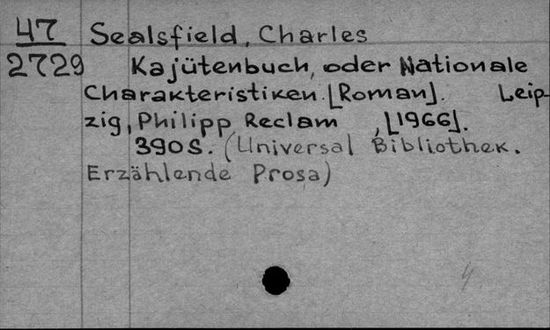 47 Sealsfield, Charles
2729 Kajütenbuch, oder Nationale
Charakteristiken. [Roman]. Leip-
zig, Philipp Reclam , [1966].
390S. (Universal Bibliothek.
Erzählende Prosa)
4